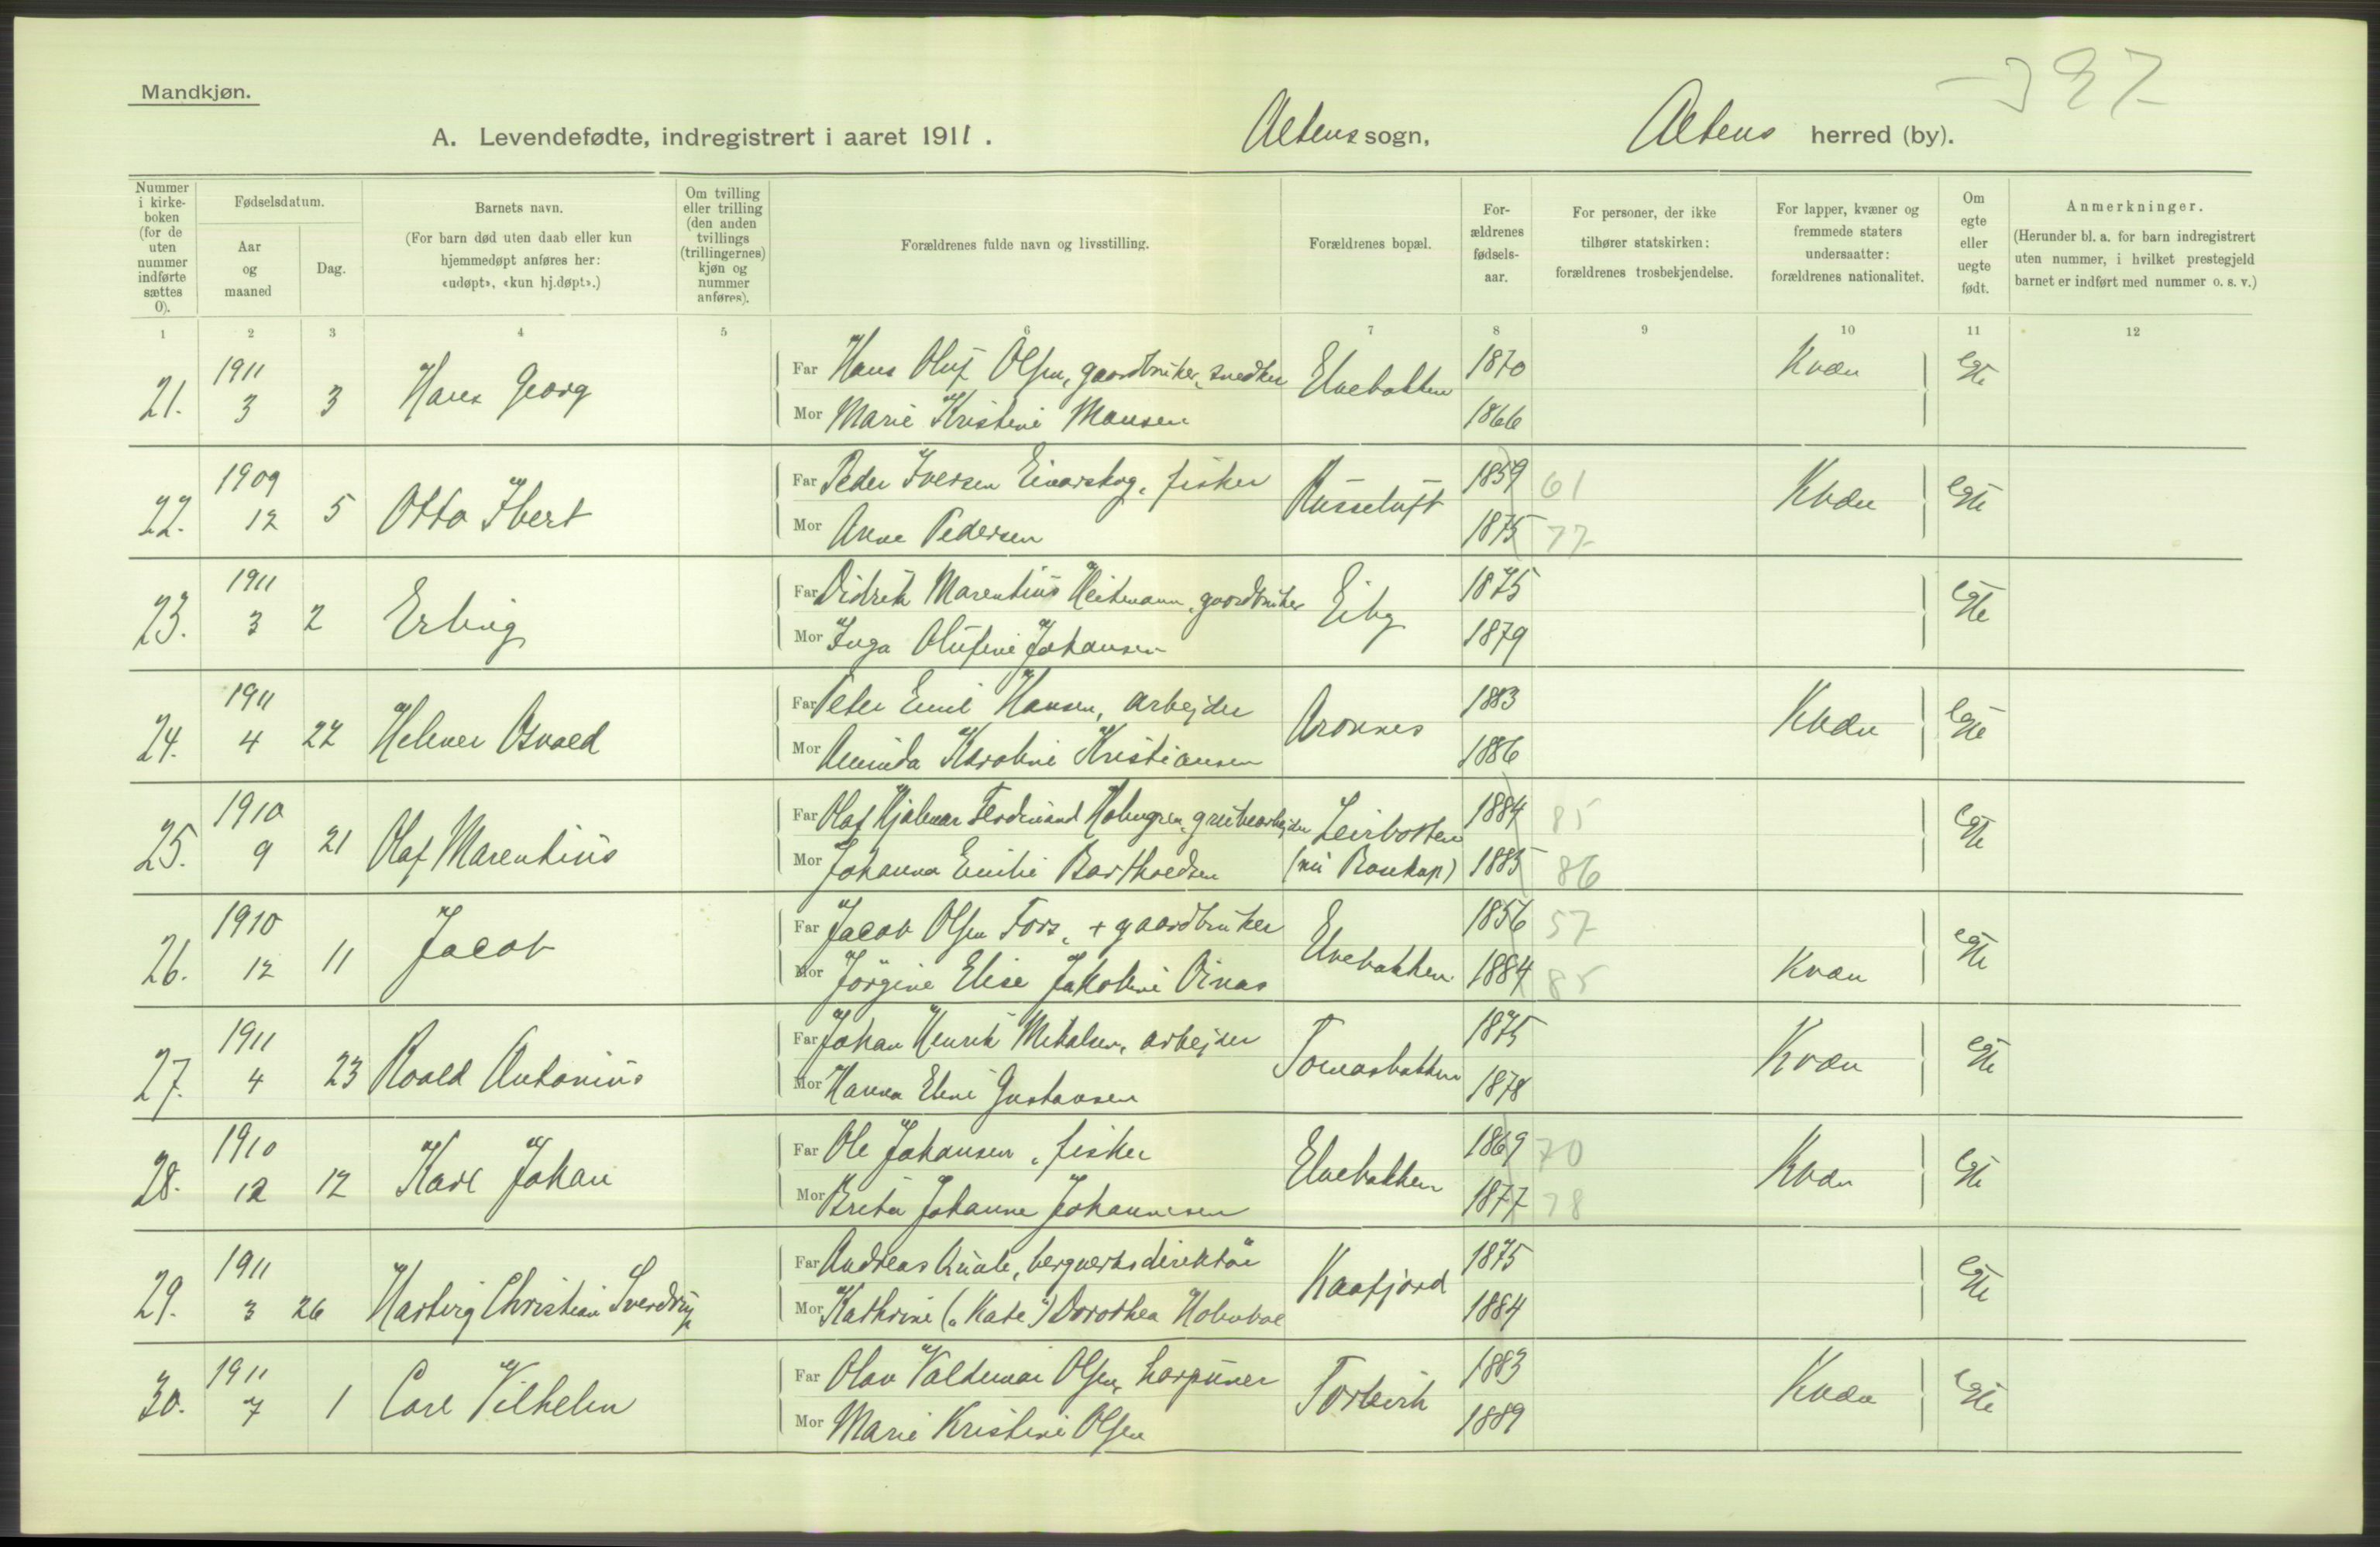 397
Mandkjøn.
A. Levendefødte, indregistrert i aaret 1911. Altens sogn, Altens herred (by).
Nummer i kirkeboken (for de uten nummer indførte sættes 0).
Fødselsdatum.
Aar og maaned
Dag.
Barnets navn.
(For barn død uten daab eller kun hjemmedøpt anføres her: «udøpt», «kun hj.døpt».)
Om tvilling eller trilling (den anden tvillings (trillingernes) kjøn og nummer anføres).
Forældrenes fulde navn og livsstilling.
Forældrenes bopæl.
Forældrenes fødselsaar.
For personer, der ikke tilhører statskirken: forældrenes trosbekjendelse.
For lapper, kvæner og fremmede staters undersaatter: forældrenes nationalitet.
Om egte eller uegte født.
Anmerkninger.
(Herunder bl. a. for barn indregistrert uten nummer, i hvilket prestegjeld barnet er indført med nummer o. s. v.)
1 2 3 4 5 6 7 8 9 10 11 12
21. 1911 3 3 Hans Georg
Far Hans Oluf Olsen, gaardbruker, snedker Elvebakken 1870 Kvæn egte
Mor Marie Kristine Monsen 1866
22. 1909 12 5 Otto Ibert
Far Peder Iversen Einarskog, fisker Russeluft 1859 61 Kvæn egte
Mor Anne Pedersen 1875 77
23. 1911 3 2 Erling
Far Didrik Marentius Heitmann, gaardbruker Eiby 1875 egte
Mor Inga Olufine Johansen 1879
24. 1911 4 22 Helmer Osvald
Far Peter Emil Hansen, arbejder Aronnes 1883 Kvæn egte
Mor Karoline Kristiansen 1886
25. 1910 9 21 Olaf Marentius
Far Olaf Hjalmar Ferdinand Holmgren, grubearbejder Leirbotten 1884 85 egte
Mor Johanna Emilie Bartholdsen (nu Bosekop) 1885 86
26. 1910 12 11 Jacob
Far Jacob Olsen Fors, + gaardbruker Elvebakken 1856 57 egte
Mor Jørgine Elise Jakobine Oinas 1884 85 Kvæn
27. 1911 4 23 Roald Antonius
Far Johan Henrik Mikalsen, arbejder Tomasbakken 1875 Kvæn egte
Mor Hanna Eline Gustavsen 1878
28. 1910 12 12 Karl Johan
Far Ole Johansen, fisker Elvebakken 1869 70 Kvæn egte
Mor Brita Johanne Johannesen 1877 78
29. 1911 3 26 Hartvig Christian Sverdrup
Far Andreas Quale, bergverksdirektør Kaafjord 1875 egte
Mor Kathrine („Kate“) Dorothea Holmboe 1884
30. 1911 7 1 Carl Vilhelm
Far Olav Valdemar Olsen, harpuner Torkvik 1883 Kvæn egte
Mor Marie Kristine Olsen 1889